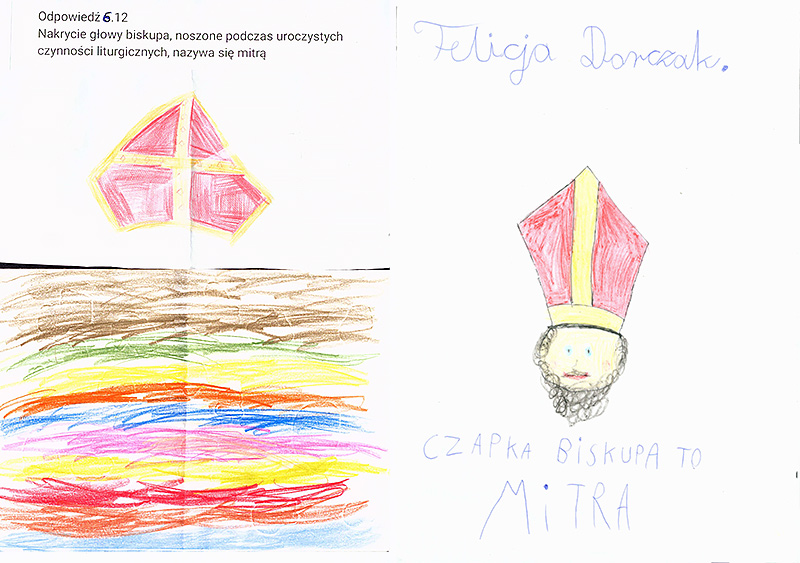 Odpowiedź 6.12
Nakrycie głowy biskupa, noszone podczas uroczystych
czynności liturgicznych, nazywa się mitrą
Felicja Dorczak.
CZAPKA BISKUPA TO
MiTRA